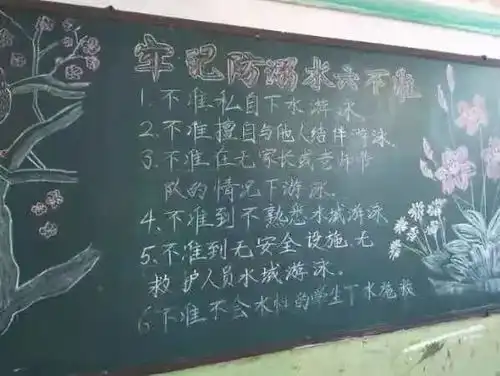 牢记防溺水六不准
1. 不准私自下水游泳
2. 不准擅自与他人结伴游泳
3. 不准在无家长或老师带
队的情况下游泳.
4. 不准到不熟悉水域游泳
5. 不准到无安全设施、无
救护人员水域游泳。
6 不准不会水性的学生下水施救